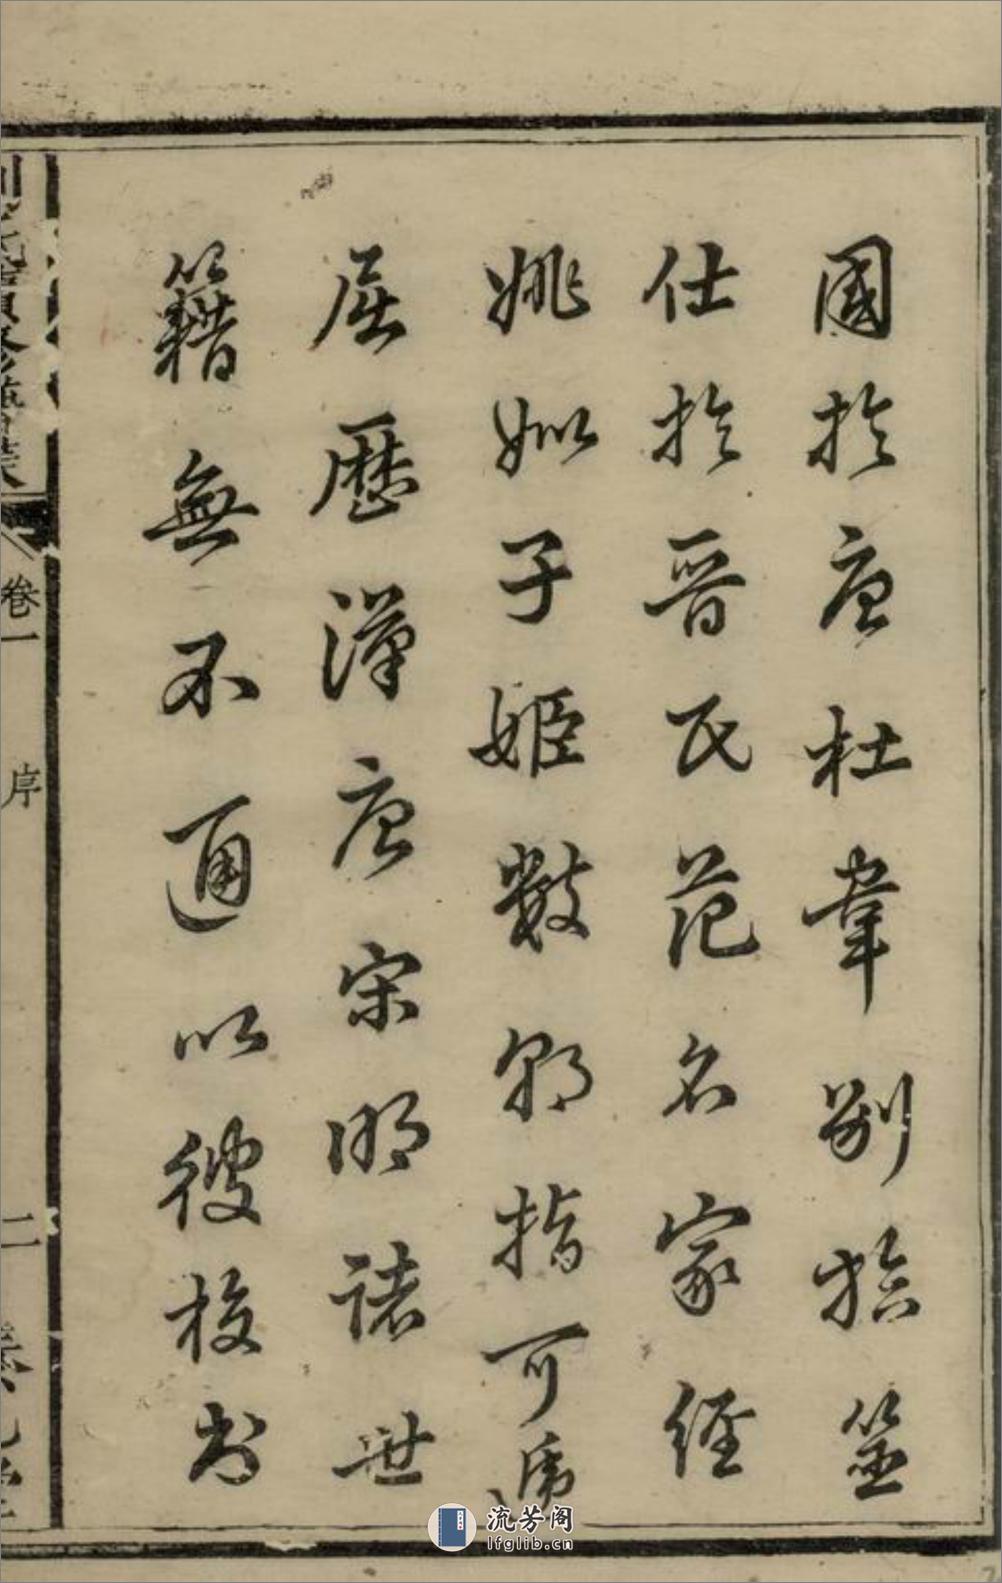 國於唐杜韋別於筮
仕於晉氏范名家經
姚姒子姬數朝指可
屈歷漢唐宋明諸世
籍無不通以彼校
卷一
序
二
流芳阁
lfglib.cn